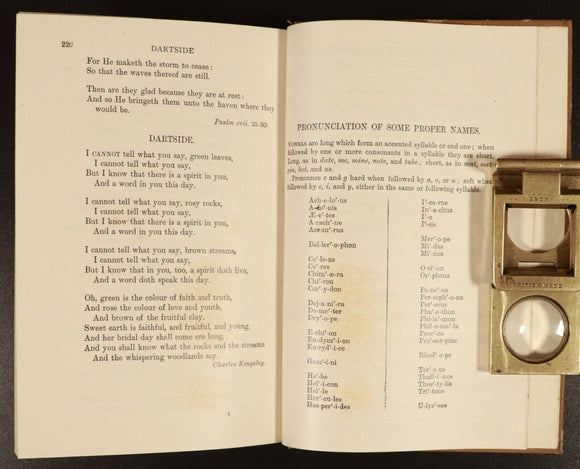 220 DARTSIDE
For He maketh the storm to cease:
So that the waves thereof are still.
Then are they glad because they are at rest:
And so He bringeth them unto the haven where they
would be.
Psalm cvii. 23-30.
DARTSIDE.
I CANNOT tell what you say, green leaves,
I cannot tell what you say,
But I know that there is a spirit in you,
And a word in you this day.
I cannot tell what you say, rosy rocks,
I cannot tell what you say,
But I know that there is a spirit in you,
And a word in you this day.
I cannot tell what you say, brown streams,
I cannot tell what you say,
But I know that in you, too, a spirit doth live,
And a word doth speak this day.
Oh, green is the colour of faith and truth,
And rose the colour of love and youth,
And brown of the fruitful clay.
Sweet earth is faithful, and fruitful, and young,
And her bridal day shall come ere long,
And you shall know what the rocks and the streams
And the whispering woodlands say.
Charles Kingsley.
PRONUNCIATION OF SOME PROPER NAMES.
VOWELS are long which form an accented syllable or end one; when
followed by one or more consonants in a syllable they are short.
Long, as in date, me, mine, note, and tube; short, as in mat, met,
pin, hot, and us.
Pronounce c and g hard when followed by a, o, or u; soft when
followed by e, i, and y, either in the same or following syllable.
Ach-e-lo'-us
A-do'-nis
Æ-e'-tes
A-rach'-ne
Arc-tu'-rus
Bel-ler'-o-phon
Ce'-le-us
Ce'-res
Chim'-æ-ra
Chi'-ron
Cor'-y-don
Dej-a-ni'-ra
De-me'-ter
Dry'-o-pe
E-chi'-on
En-dym'-i-on
Eu-ryd'-i-ce
Gem'-i-ni
He'-be
Hel'-i-con
Hel'-le
Her'-cu-les
Hes-per'-i-des
I'-ca-rus
In'-a-chus
I'-o
I'-sis
Mer'-o-pe
Mi'-das
Mi'-nos
O-ri'-on
Or'-pheus
Pe-ne'-us
Per-seph'-o-ne
Per'-seus
Pha'-e-thon
Phi-le'-mon
Phil-o-me'-la
Proc'-ne
Pro'-ser-pine
Rhod'-o-pe
Ter'-e-us
Thall-i'-nos
Thes'-ty-lis
Tri'-tons
U-lys'-ses
INOX
BRITISH MADE